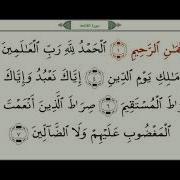 سورة الفاتحة
ـمَٰنِ الرَّحِيمِ ١ الْحَمْدُ لِلَّهِ رَبِّ الْعَـٰلَمِينَ
مَـٰلِكِ يَوْمِ الدِّينِ ٤ إِيَّاكَ نَعْبُدُ وَإِيَّاكَ
ـرَاطَ الْمُسْتَقِيمَ ٦ صِرَاطَ الَّذِينَ أَنْعَمْتَ
الْمَغْضُوبِ عَلَيْهِمْ وَلَا الضَّالِّينَ ٧